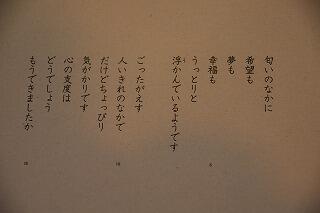 匂いのなかに
希望も
夢も
幸福も
うっとりと
浮かんでいるようです
ごったがえす
人いきれのなかで
だけどちょっぴり
気がかりです
心の支度は
どうでしょう
もうできましたか